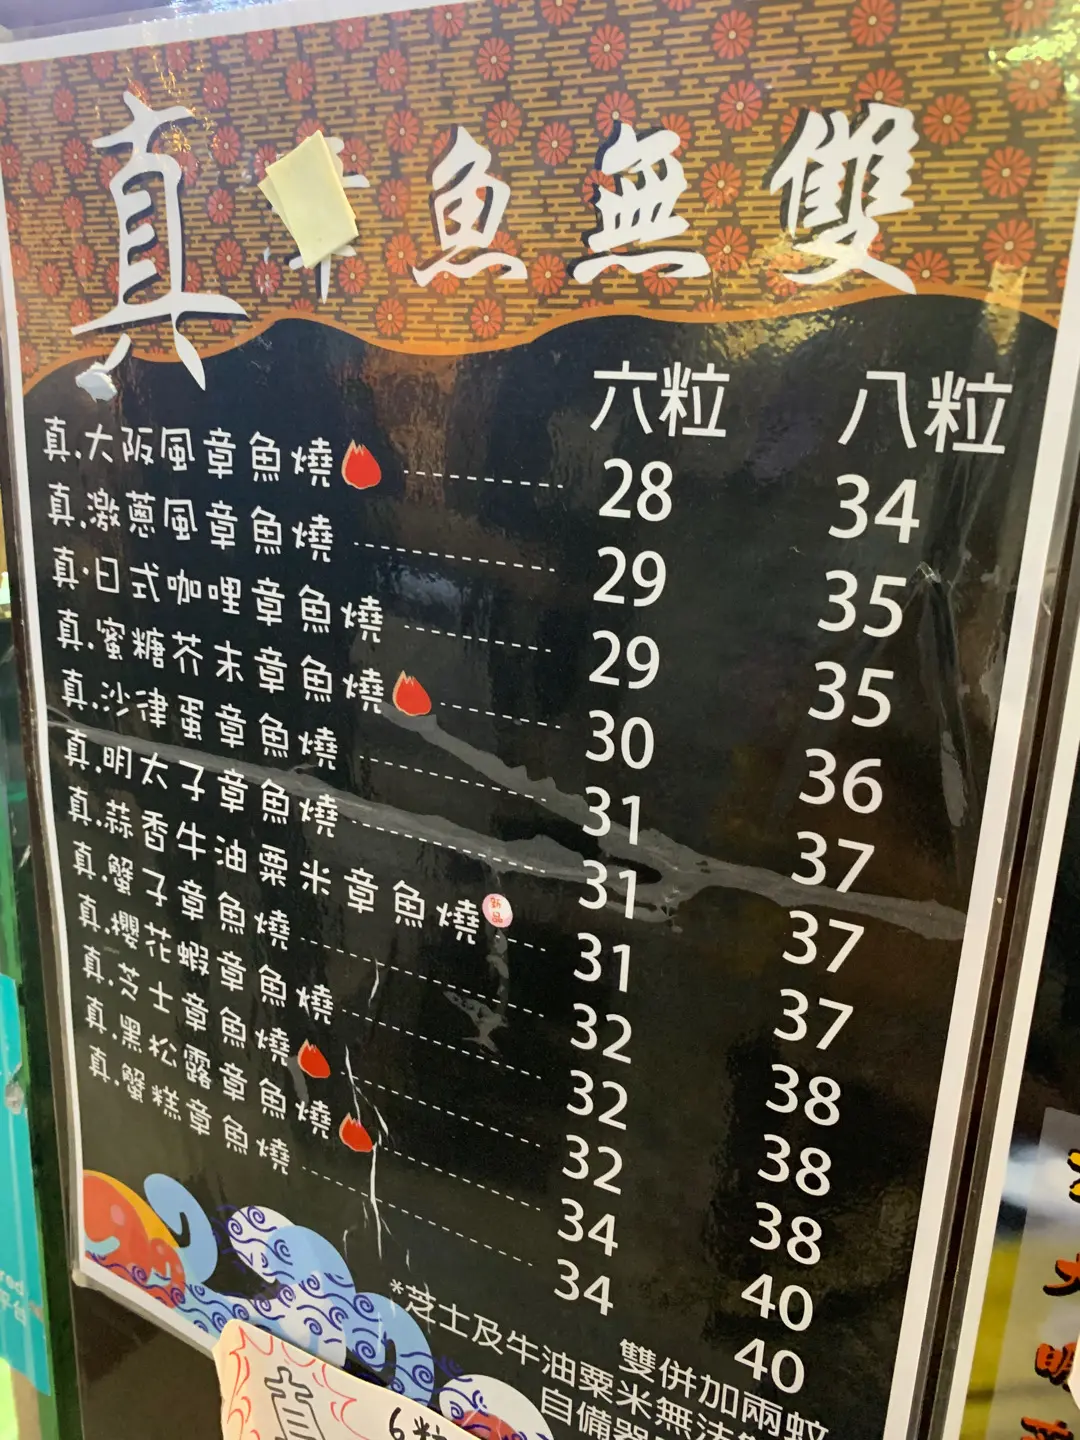 真 魚無雙
六粒 八粒
真.大阪風章魚燒 28 34
真.激蔥風章魚燒 29 35
真.日式咖哩章魚燒 29 35
真.蜜糖芥末章魚燒 30 36
真.沙律蛋章魚燒 31 37
真.明太子章魚燒 31 37
真.蒜香牛油粟米章魚燒 新品 31 37
真.蟹子章魚燒 32 38
真.櫻花蝦章魚燒 32 38
真.芝士章魚燒 32 38
真.黑松露章魚燒 34 40
真.蟹糕章魚燒 34 40
雙併加兩蚊
*芝士及牛油粟米無法
自備器
真
6粒